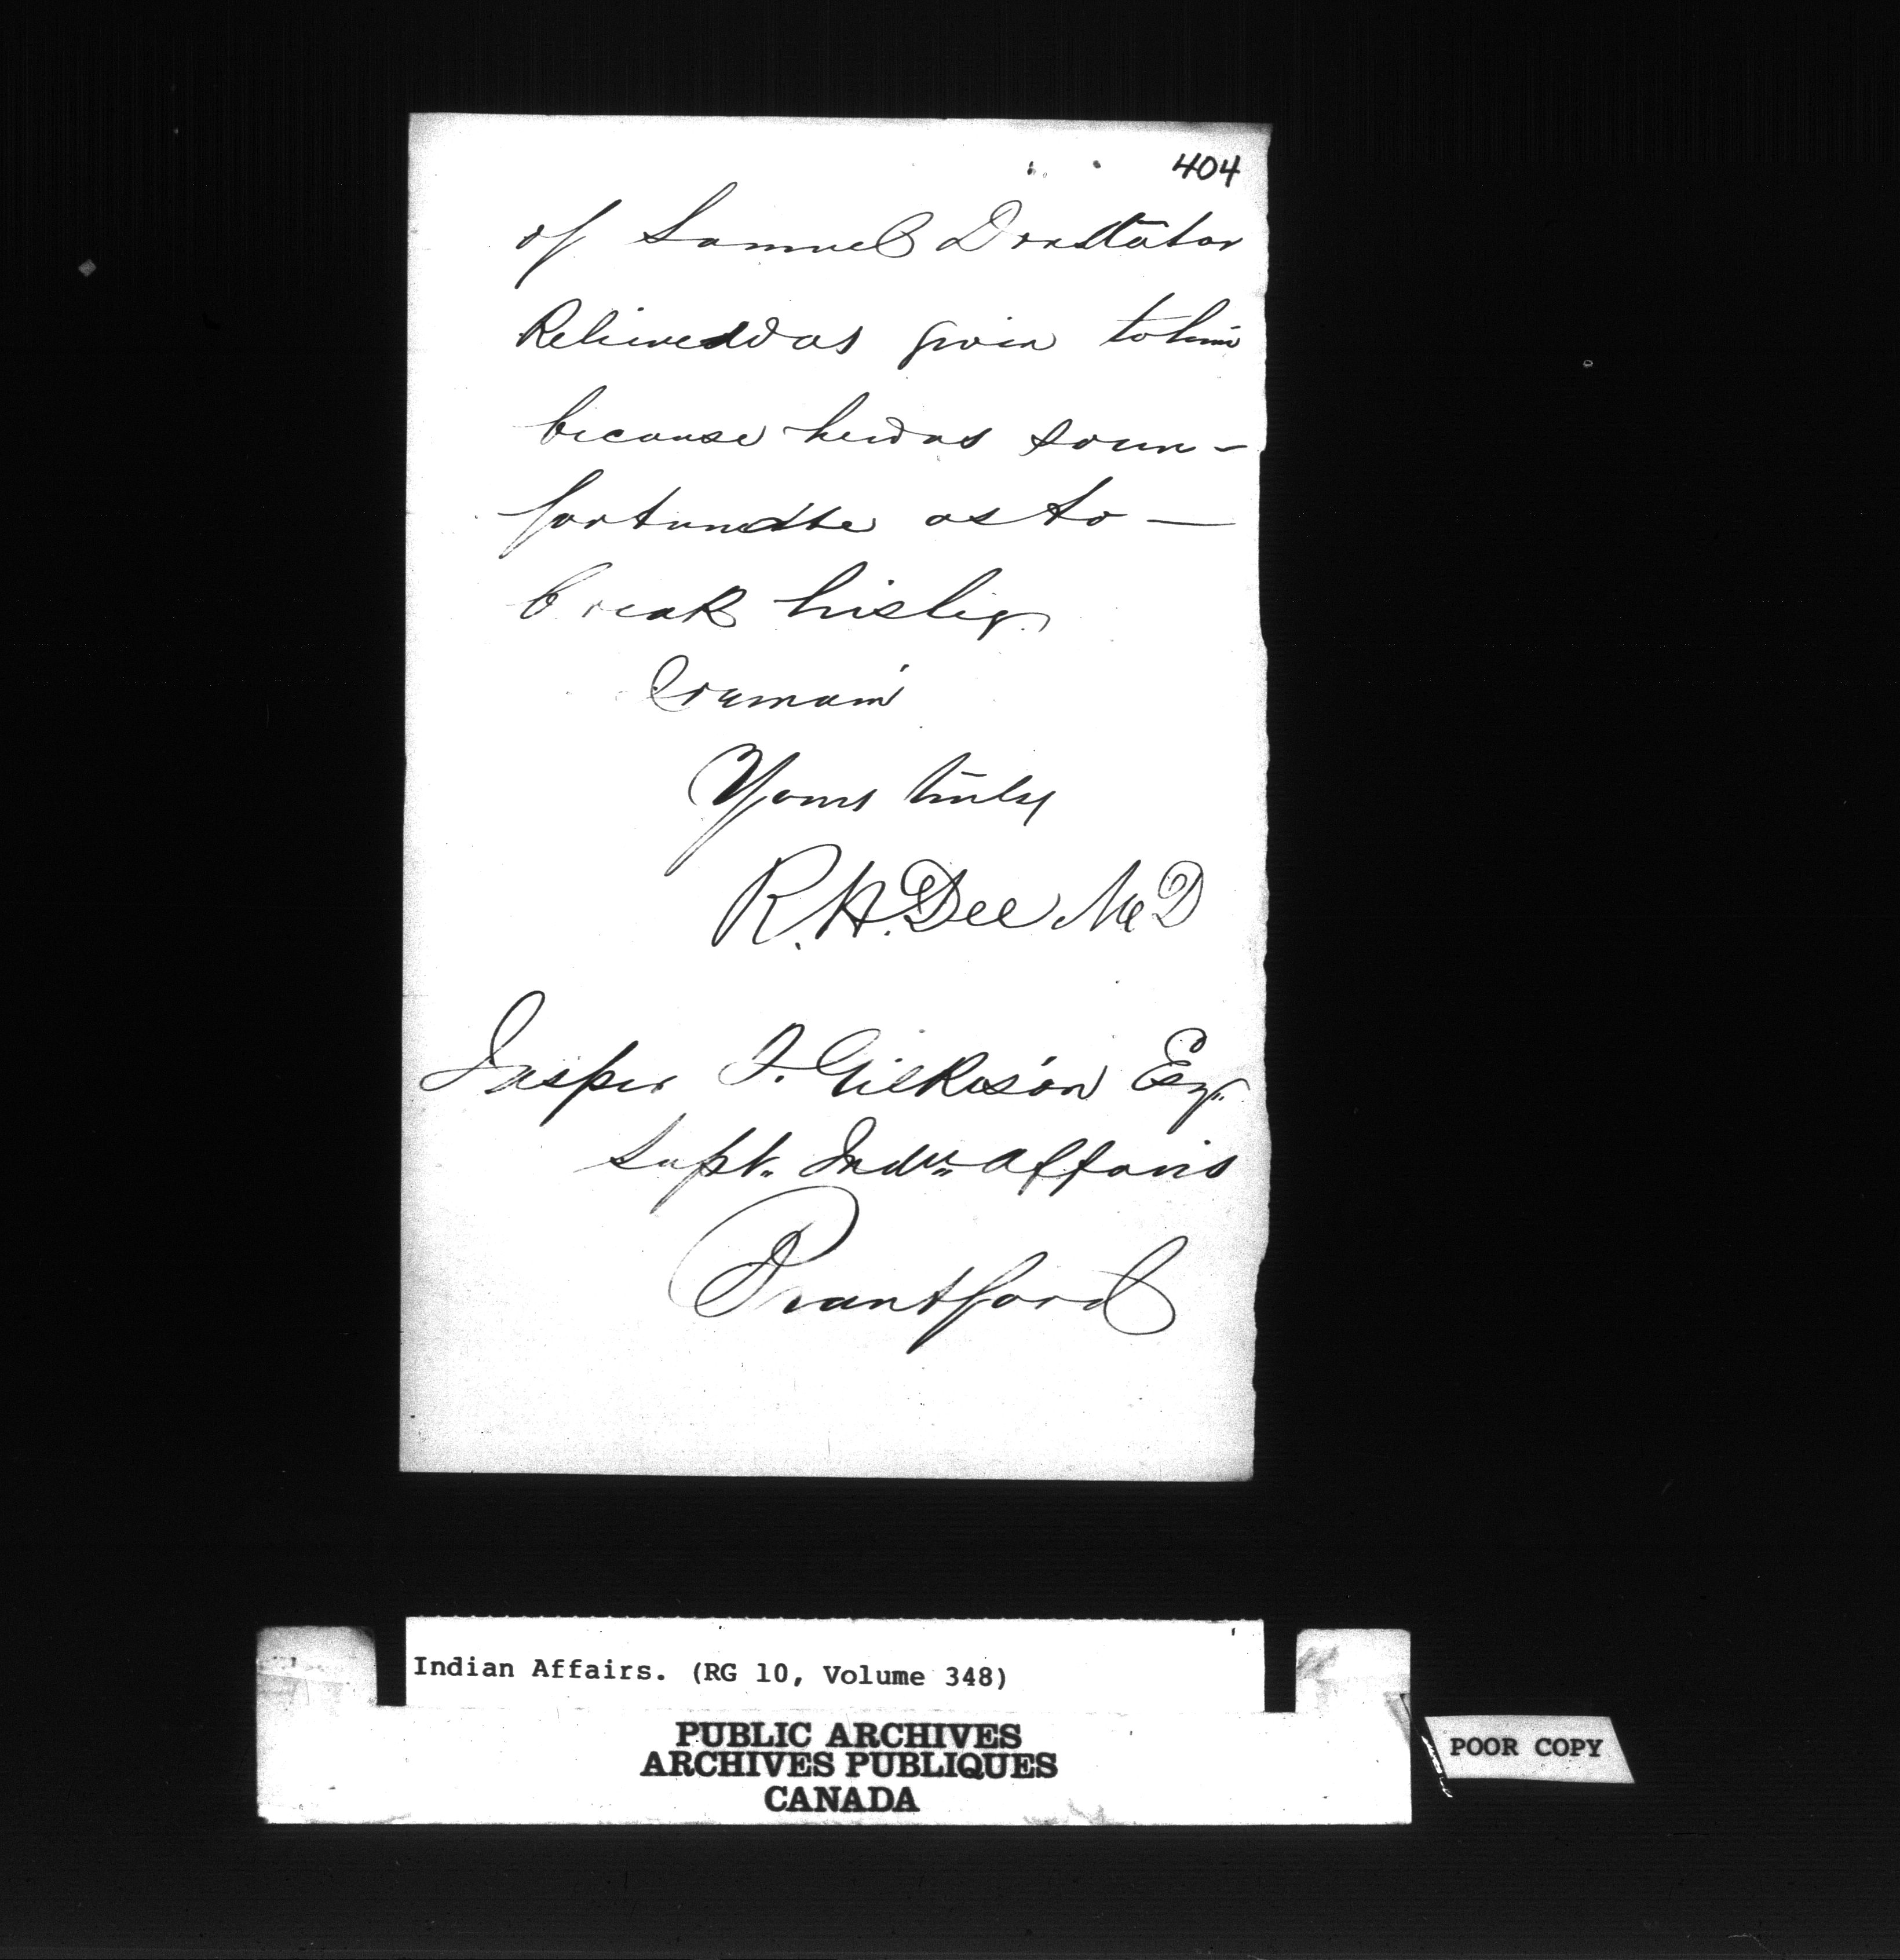 404
of Samuel Doxtator
Relieve was given to him
because he was so un-
fortunate as to —
break his leg.
I remain
Yours truly
R. H. Dee M D
Jasper T. Gilkison Esq.
Supt. Indn. Affairs
Brantford
Indian Affairs. (RG 10, Volume 348)
PUBLIC ARCHIVES
ARCHIVES PUBLIQUES
CANADA
POOR COPY